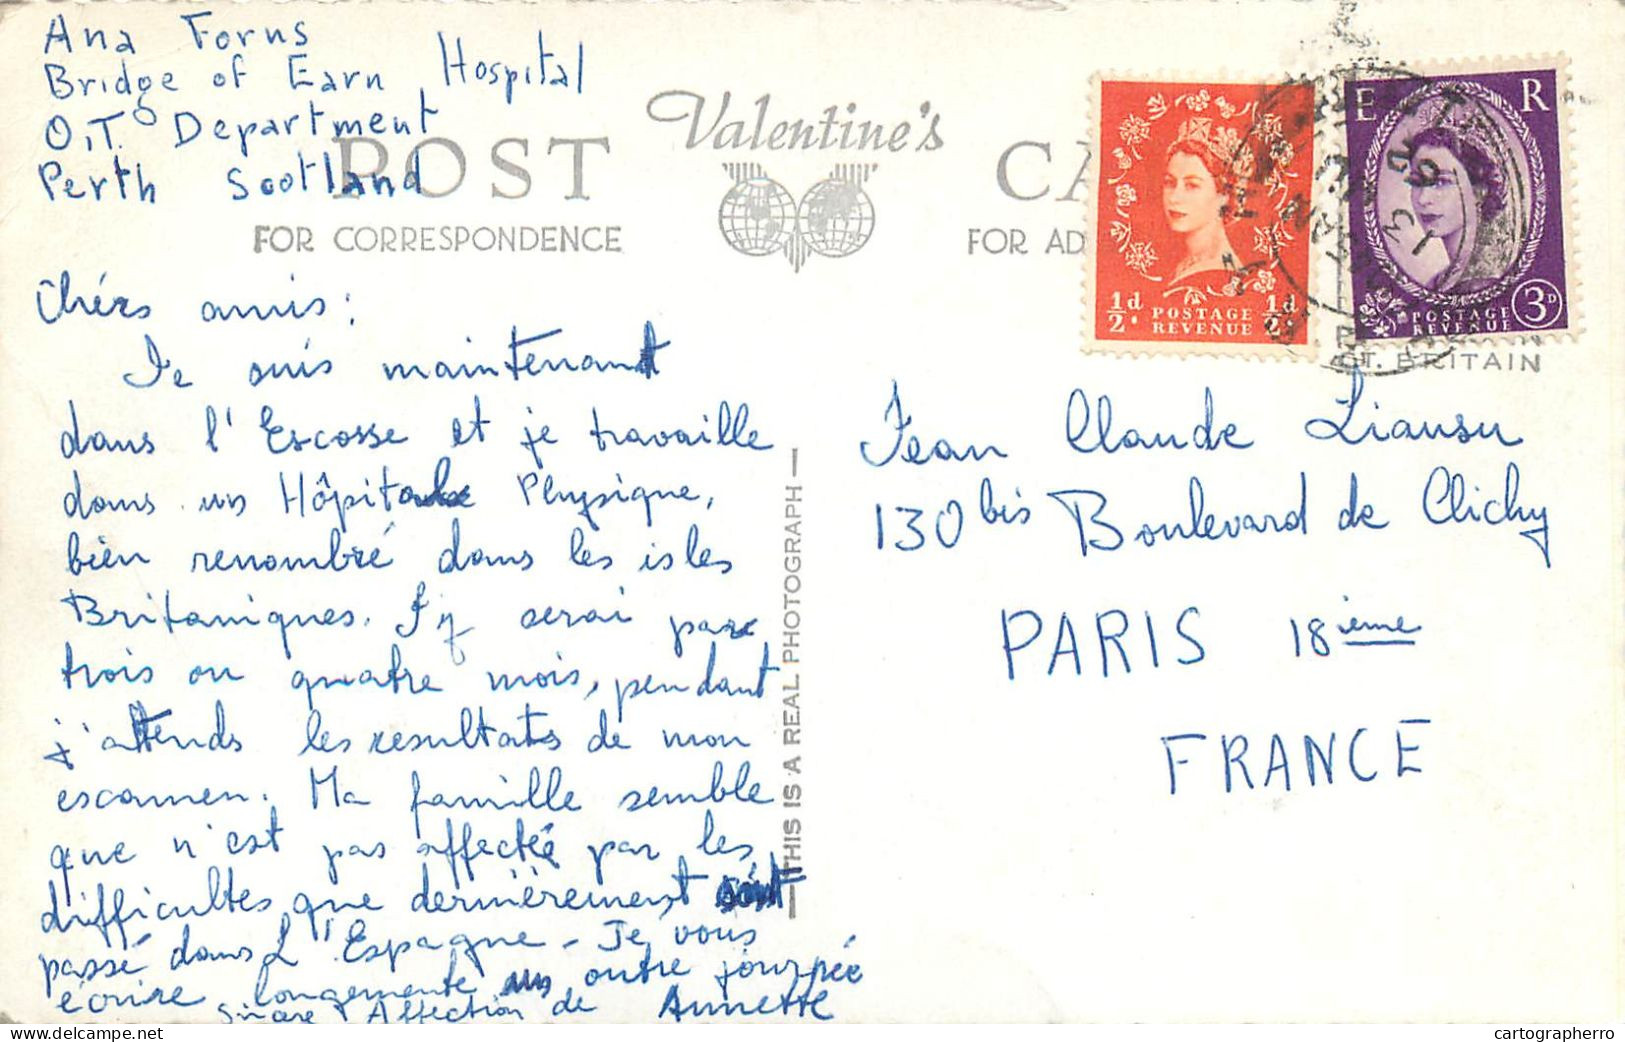 Ana Forns
Bridge of Earn Hospital
O.T. Department
Perth Scotland
POST
FOR CORRESPONDENCE
Valentine's
CA
FOR AD
1/2d POSTAGE REVENUE 1/2d
E R
POSTAGE REVENUE 3D
GT. BRITAIN
Chérs amis:
Je suis maintenant
dans l'Escosse et je travaille
dans un Hôpital Physique,
bién renombré dans les isles
Britaniques. J'y serai par
trois ou quatre mois, pendant
j'attends les resultats de mon
escamen. Ma famille semble
que n'est pas affecté par les
difficultes que dernièrement sont
passé dans L'Espagne - Je vous
écrire longemente un outre journée
Sincere Affection de Annette
THIS IS A REAL PHOTOGRAPH
Jean Claude Liausu
130 bis Boulevard de Clichy
PARIS 18ième
FRANCE
cartographerro